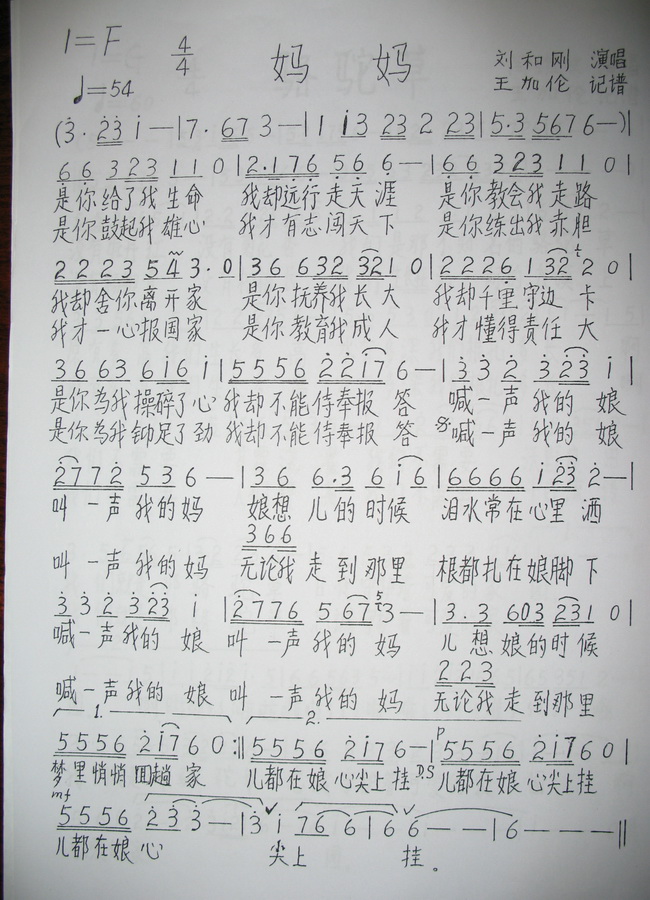 1=F 4/4 妈 妈 刘和刚 演唱
♩=54 王加伦 记谱
(3̇· 2̇3̇ i — | 7· 67 3 — | 1 i3 23 2 23 | 5·3 5676 — ) |
66 323 11 0 | 2·176 56 6 — | 66 323 11 0 |
是你给了我 生命 我却远行 走天 涯 是你教会我 走路
是你鼓起我 雄心 我才有志 闯天 下 是你练出我 赤胆
2223 54 3·0 | 36 632 321 0 | 2226 1 32 2 0 |
我却舍你离开家 是你 抚养我 长 大 我却千里守边 卡
我才一心报国家 是你 教育我 成 人 我才懂得责任 大
36 63 6i6 i | 5556 2̇2̇i7 6 — | 3̇3̇ 2̇ 3̇2̇3̇ i |
是你为我 操碎了 心 我却不能侍奉报 答 喊一 声 我的 娘
是你为我 铆足了 劲 我却不能侍奉报 答 喊一 声 我的 娘
2̇772̇ 53 6 — | 36 6·3 6 i6 | 6666 i 2̇3̇ 2̇ — |
叫 一声 我的 妈 娘想 儿 的 时候 泪水常在心里 洒
366
叫 一声 我的 妈 无论我 走 到 那里 根都扎在娘脚 下
3̇3̇2̇ 3̇2̇3̇ i | 2̇776 5 67 3 — | 3·3 603 231 0 |
喊一声 我的 娘 叫 一声 我的 妈 儿 想 娘的 时 候
223
喊一声 我的 娘 叫 一声 我的 妈 无论我 走 到那里
1. 2.
5556 2̇i76 0 :‖ 5556 2̇i76 — | p 5556 2̇i76 0 |
梦里悄悄 回趟 家 儿都在娘 心尖上 挂 D.S 儿都在娘 心尖上挂
mf
5556 2̇3̇3̇ — | 3̇ i 76 6 | 6 6 — — — | 6 — — — ‖
儿都在娘 心 尖上 挂。